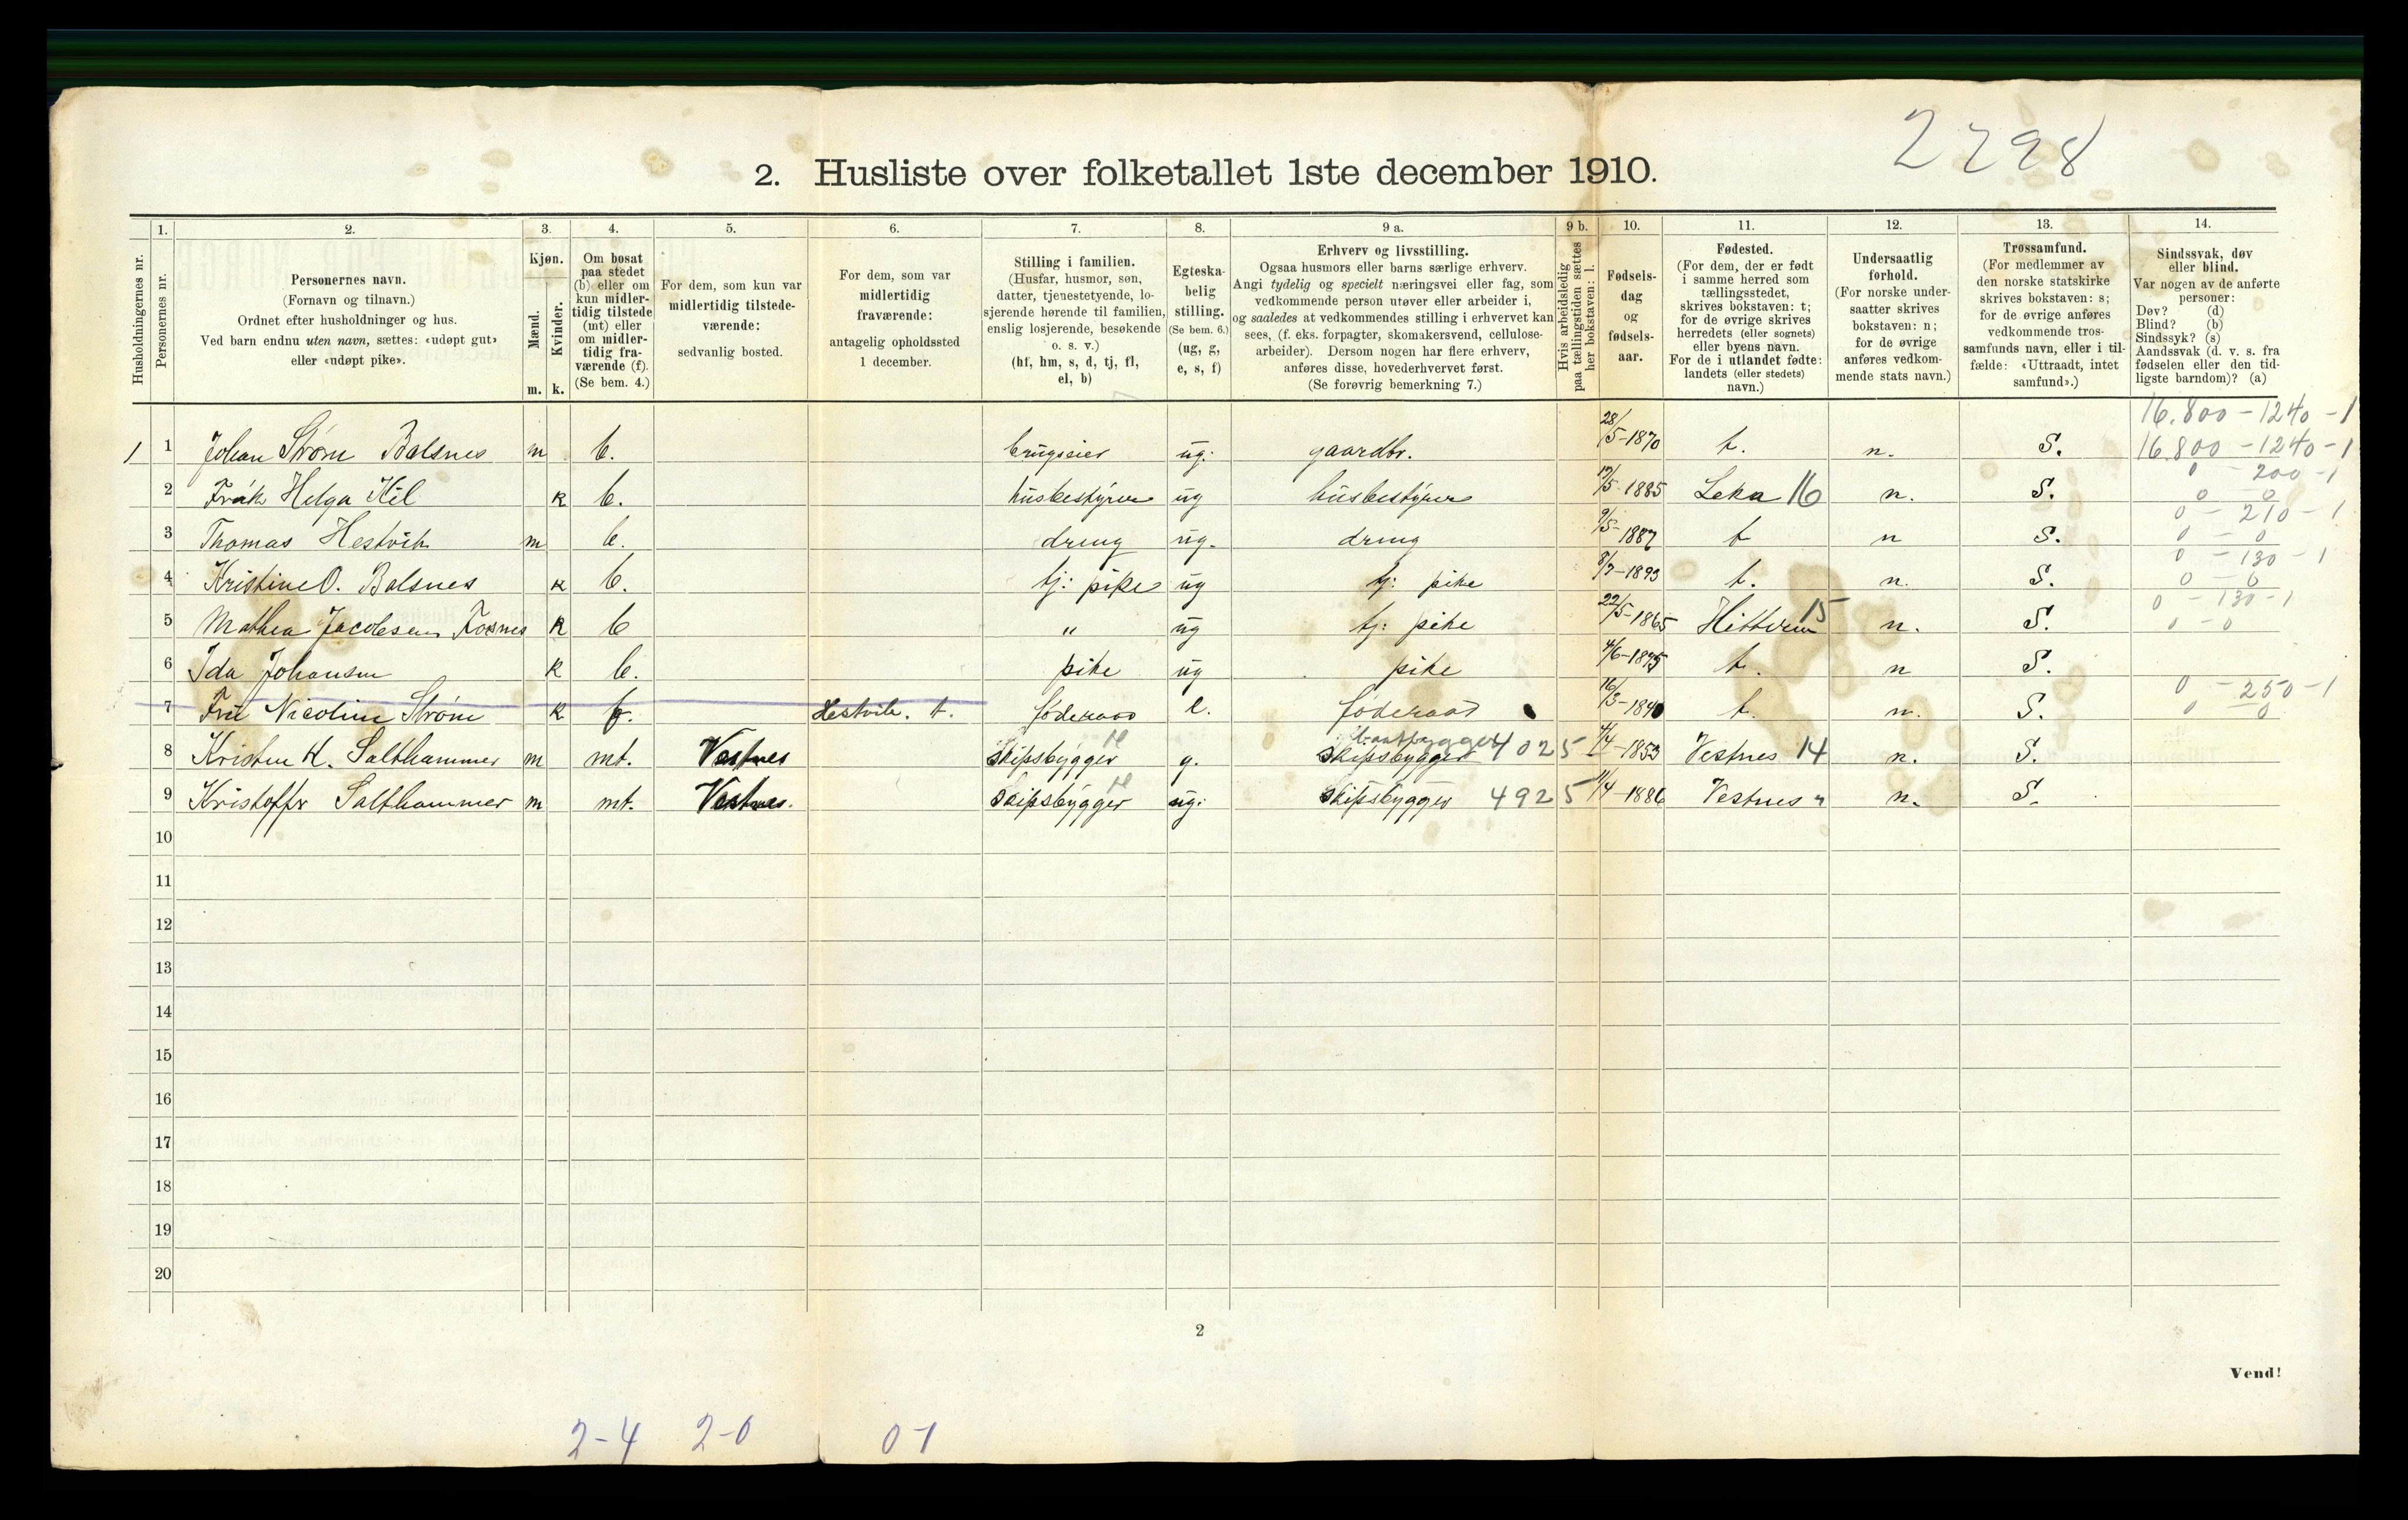 2298
2. Husliste over folketallet 1ste december 1910.
Husholdningernes nr.
1. Personernes nr.
2. Personernes navn. (Fornavn og tilnavn.) Ordnet efter husholdninger og hus. Ved barn endnu uten navn, sættes: «udøpt gut» eller «udøpt pike».
3. Kjøn. Mænd. m. Kvinder. k.
4. Om bosat paa stedet (b) eller om kun midlertidig tilstede (mt) eller om midlertidig fraværende (f). (Se bem. 4.)
5. For dem, som kun var midlertidig tilstedeværende: sedvanlig bosted.
6. For dem, som var midlertidig fraværende: antagelig opholdssted 1 december.
7. Stilling i familien. (Husfar, husmor, søn, datter, tjenestetyende, losjerende hørende til familien, enslig losjerende, besøkende o. s. v.) (hf, hm, s, d, tj, fl, el, b)
8. Egteskabelig stilling. (Se bem. 6.) (ug, g, e, s, f)
9 a. Erhverv og livsstilling. Ogsaa husmors eller barns særlige erhverv. Angi tydelig og specielt næringsvei eller fag, som vedkommende person utøver eller arbeider i, og saaledes at vedkommendes stilling i erhvervet kan sees, (f. eks. forpagter, skomakersvend, cellulosearbeider). Dersom nogen har flere erhverv, anføres disse, hovederhvervet først. (Se forøvrig bemerkning 7.)
9 b. Hvis arbeidsledig paa tællingstiden sættes her bokstaven: l.
10. Fødselsdag og fødselsaar.
11. Fødested. (For dem, der er født i samme herred som tællingsstedet, skrives bokstaven: t; for de øvrige skrives herredets (eller sognets) eller byens navn. For de i utlandet fødte: landets (eller stedets) navn.)
12. Undersaatlig forhold. (For norske undersaatter skrives bokstaven: n; for de øvrige anføres vedkommende stats navn.)
13. Trossamfund. (For medlemmer av den norske statskirke skrives bokstaven: s; for de øvrige anføres vedkommende trossamfunds navn, eller i tilfælde: «Uttraadt, intet samfund».)
14. Sindssvak, døv eller blind. Var nogen av de anførte personer: Døv? (d) Blind? (b) Sindssyk? (s) Aandssvak (d. v. s. fra fødselen eller den tidligste barndom)? (a)
16.800 - 1240 - 1
1 1 Johan Strøm Balsnes m b. brugseier ug. gaardbr. 28/5-1870 t. n. S. 16.800 - 1240 - 1
0 - 200 - 1
2 Frøk Helga Kil k b. husbestyrer ug husbestyrer 17/5-1885 Leka 16 n. S. 0 - 0
0 - 210 - 1
3 Thomas Hestvik m b. dreng ug. dreng 9/5-1887 t n S. 0 - 0
0 - 130 - 1
4 Kristine O. Balsnes k b. tj: pike ug tj: pike 8/7-1893 t. n. S. 0 - 0
0 - 130 - 1
5 Mathea Jacobsen Fosnes k b " ug tj: pike 22/5-1865 Hitteren 15 n. S. 0 - 0
6 Ida Johansen k b. pike ug pike 4/6-1895 t. n S.
0 - 250 - 1
7 Fru Nicoline Strøm k f. Hestvik. t. føderaad e. føderaad 16/3-1840 t. n. S. 0 0
8 Kristen K. Salthammer m mt. Vestnes skipsbygger g. baatbygger skipsbygger 4025 4/4-1853 Vestnes 14 n. S.
9 Kristoffer Salthammer m mt. Vestnes. Skipsbygger ug. skipsbygger 4925 11/4-1886 Vestnes " n. S.
10
11
12
13
14
15
16
17
18
19
20
2
Vend!
2-4 2-0 0-1